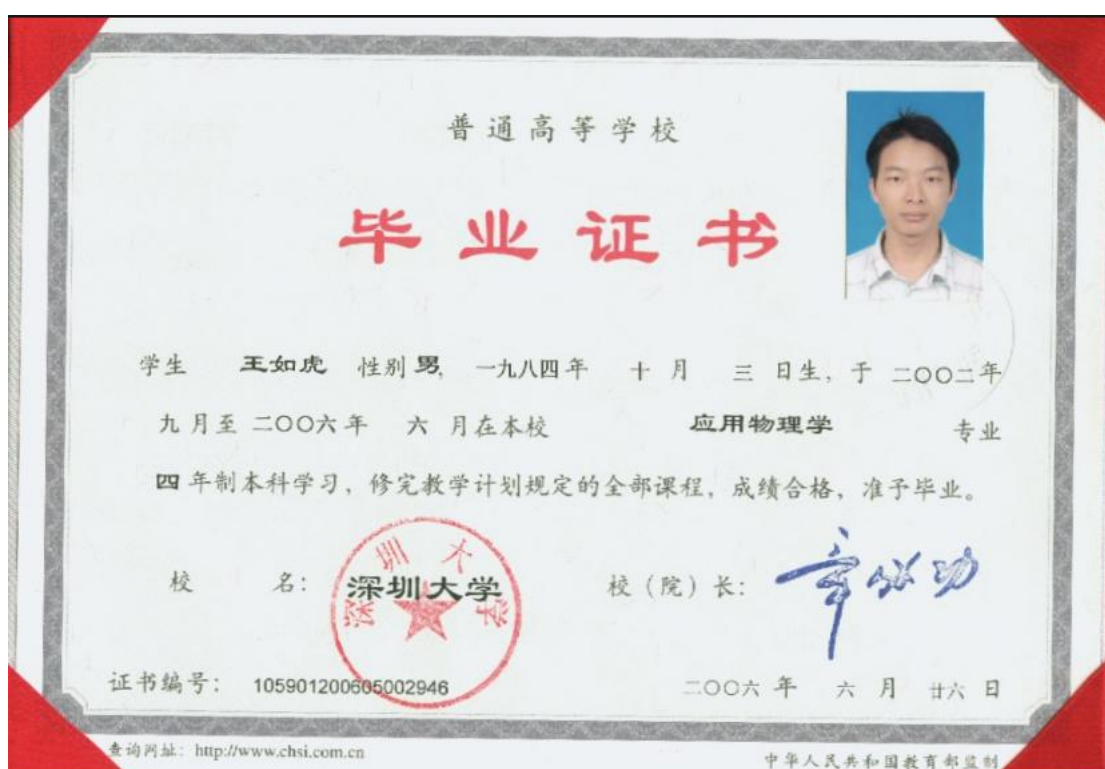 普通高等学校
毕业证书
学生 王如虎 性别 男, 一九八四年 十月 三日生, 于二〇〇二年
九月至二〇〇六年 六月在本校 应用物理学 专业
四年制本科学习, 修完教学计划规定的全部课程, 成绩合格, 准予毕业。
校 名: 深圳大学 校(院)长: 章必功
深圳大学
证书编号: 105901200605002946 二〇〇六年 六月 廿六日
查询网址: http://www.chsi.com.cn 中华人民共和国教育部监制